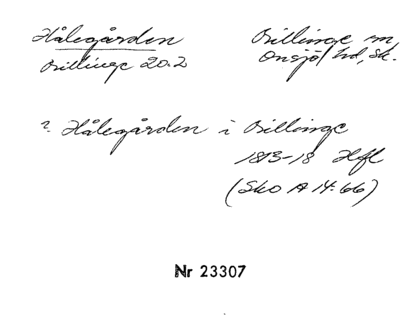 Hålegården
Billinge 20.2
Billinge sn
Onsjö hd, Sk.
? Hålegården i Billinge
1813-18 Hfl
(Sko A 14:66)
Nr 23307